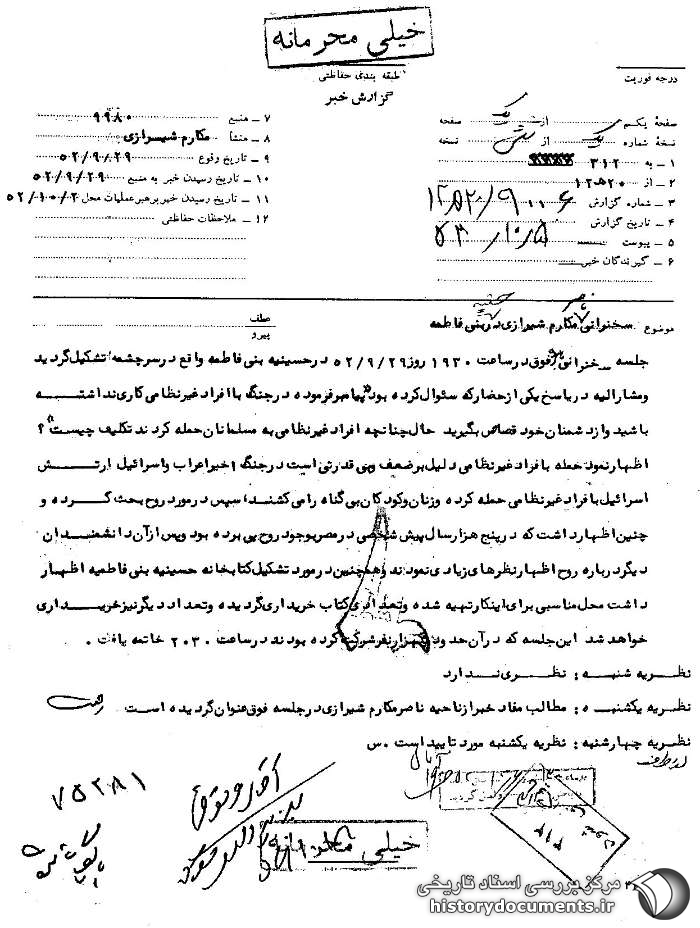 خیلی محرمانه
طبقه بندی حفاظتی
گزارش خبر
درجه فوریت
صفحهٔ یکم از یک صفحه
نسخهٔ شماره یک از شش نسخه
۱ ـ به ۳۱۲
۲ ـ از ۱۲ه۲۰
۳ ـ شماره گزارش
۴ ـ تاریخ گزارش
۵ ـ پیوست
۶ ـ گیرندگان خبر
۷ ـ منبع ۹۹۸۰
۸ ـ منشأ مکارم شیرازی
۹ ـ تاریخ وقوع ۵۲/۹/۲۹
۱۰ ـ تاریخ رسیدن خبر به منبع ۵۲/۹/۲۹
۱۱ ـ تاریخ رسیدن خبر برهبر عملیات محل ۵۲/۱۰/۲
۱۲ ـ ملاحظات حفاظتی
موضوع سخنرانی ناصر مکارم شیرازی در حسینیه بنی فاطمه
عطف
پیرو
جلسه سخنرانی فوق در ساعت ۱۹۳۰ روز ۵۲/۹/۲۹ در حسینیه بنی فاطمه واقع در سرچشمه تشکیل گردید
و مشارالیه در پاسخ یکی از حضار که سئوال کرده بود پیامبر فرموده در جنگ با افراد غیر نظامی کاری نداشته
باشید و از دشمنان خود قصاص بگیرید حال چنانچه افراد غیر نظامی به مسلمانان حمله کردند تکلیف چیست؟
اظهار نمود حمله با فراد غیر نظامی دلیل بر ضعف وبی قدرتی است در جنگ اخیر اعراب و اسرائیل ارتش
اسرائیل با فراد غیر نظامی حمله کرده و زنان وکودکان بی گناه را می کشند، سپس در مورد روح بحث کرده و
چنین اظهار داشت که در پنج هزار سال پیش شخصی در مصر بوجود روح پی برده بود و پس از آن دانشمندان
دیگر در باره روح اظهار نظرهای زیادی نمودند و همچنین در مورد تشکیل کتابخانه حسینیه بنی فاطمیه اظهار
داشت محل مناسبی برای اینکار تهیه شده و تعدادی کتاب خریداری گردیده و تعداد دیگر نیز خریداری
خواهد شد این جلسه که در آن حدود یکهزار نفر شرکت کرده بودند در ساعت ۲۰۳۰ خاتمه یافت .
نظریه شنبه : نظری ندارد
نظریه یکشنبه : مطالب مفاد خبر از ناحیه ناصر مکارم شیرازی در جلسه فوق عنوان گردیده است
نظریه چهارشنبه : نظریه یکشنبه مورد تایید است . س
۷۵۲۸۱
خیلی محرمانه
مرکز بررسی اسناد تاریخی
historydocuments.ir